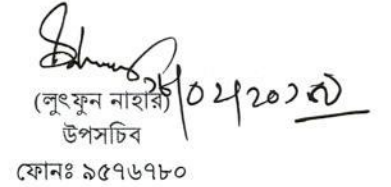 ২৮/০২/২০১৯
(লুৎফুন নাহার)
উপসচিব
ফোনঃ ৯৫৭৬৭৮০